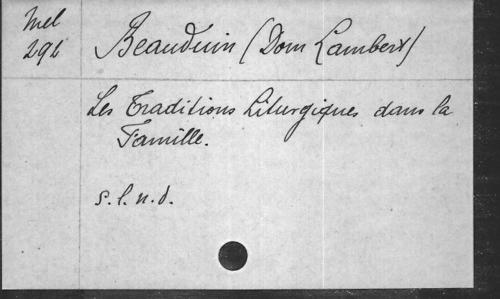 Mel
292
Beauduin (Dom Lambert)
Les Traditions Liturgiques dans la
Famille.
s.l.n.d.